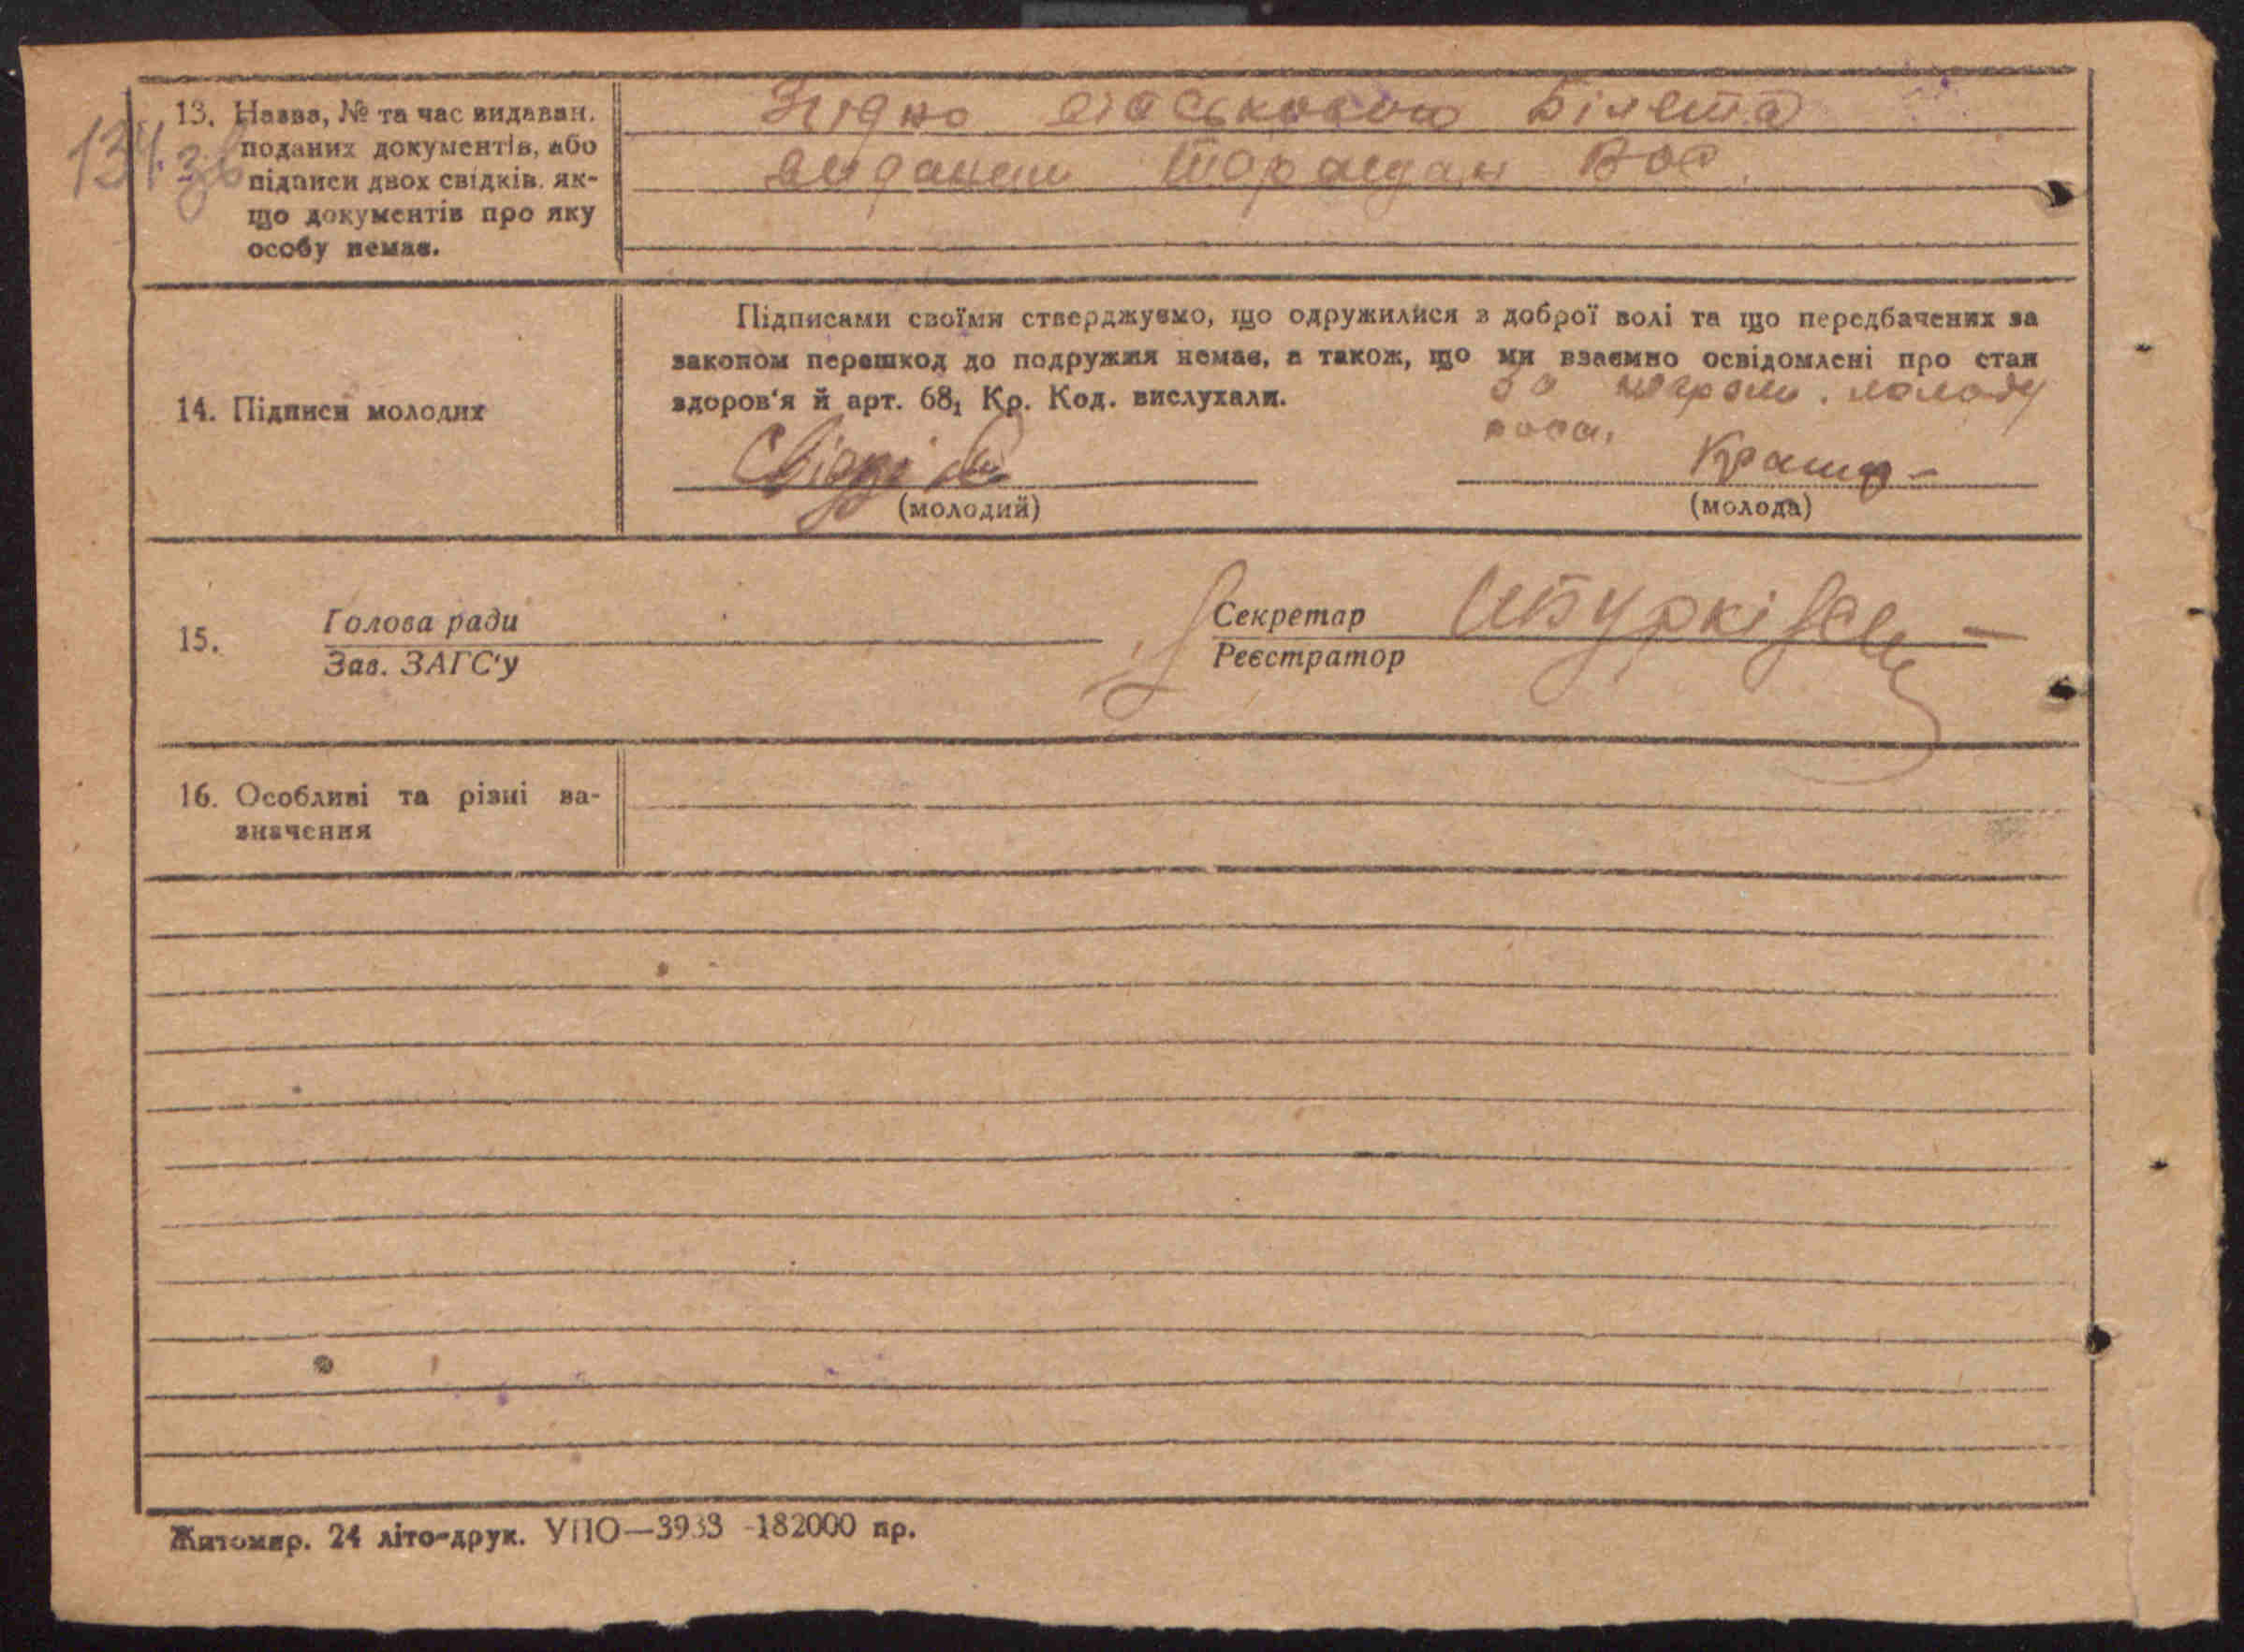 13. Назва, № та час видаван.
поданих документів, або
підписи двох свідків, як-
що документів про яку
особу немає.
Згідно військового Білета
видании
134 зв
Підписами своїми стверджуємо, що одружилися з доброї волі та що передбачених за
законом перешкод до подружжя немає, а також, що ми взаємно освідомлені про стан
здоров'я й арт. 68, Кр. Код. вислухали.
14. Підписи молодих
за молоду
(молодий)
(молода)
15.
Голова ради
Зав. ЗАГС'у
Секретар
Реєстратор
16. Особливі та різні за-
значення
Житомир. 24 літо-друк. УПО—3933 -182000 пр.